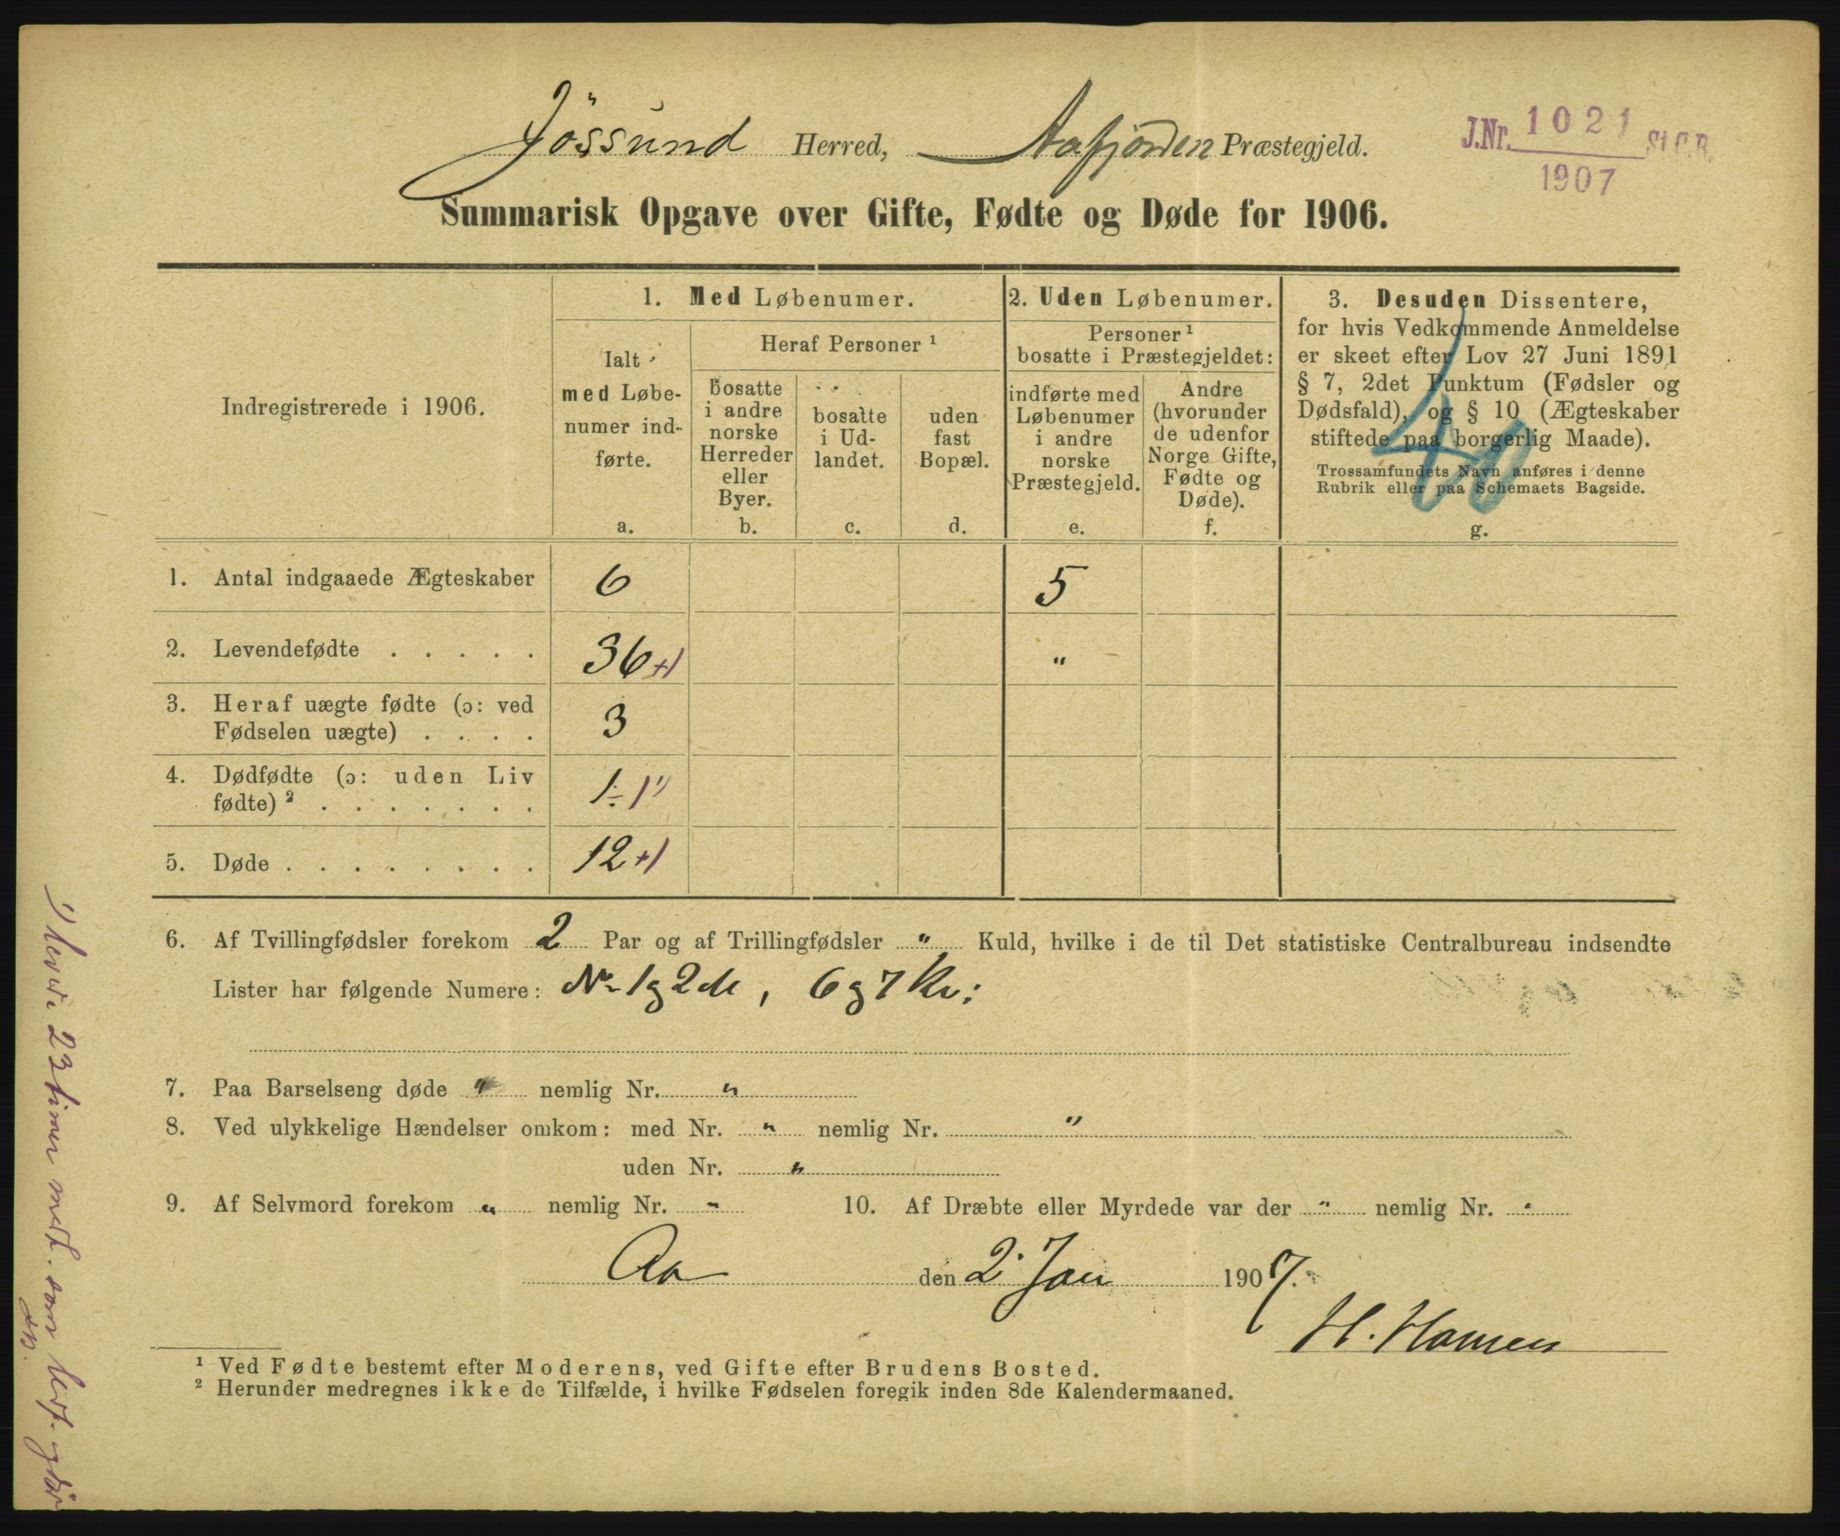 Jössund Herred, Aafjorden Præstegjeld.
J.Nr. 1021 St.C.B.
1907
Summarisk Opgave over Gifte, Fødte og Døde for 1906.
Indregistrerede i 1906.
1. Med Løbenumer.
Ialt
med Løbe-
numer ind-
førte.
a.
Heraf Personer ¹
bosatte
i andre
norske
Herreder
eller
Byer.
b.
bosatte
i Ud-
landet.
c.
uden
fast
Bopæl.
d.
2. Uden Løbenumer.
Personer ¹
bosatte i Præstegjeldet:
indførte med
Løbenumer
i andre
norske
Præstegjeld.
e.
Andre
(hvorunder
de udenfor
Norge Gifte,
Fødte og
Døde).
f.
3. Desuden Dissentere,
for hvis Vedkommende Anmeldelse
er skeet efter Lov 27 Juni 1891
§ 7, 2det Punktum (Fødsler og
Dødsfald), og § 10 (Ægteskaber
stiftede paa borgerlig Maade).
Trossamfundets Navn anføres i denne
Rubrik eller paa Schemaets Bagside.
g.
40
1. Antal indgaaede Ægteskaber 6 5
2. Levendefødte . . . . . 36+1 "
3. Heraf uægte fødte (ɔ: ved
Fødselen uægte) . . . . 3
4. Dødfødte (ɔ: uden Liv
fødte) ² . . . . . . . 1÷1¹⁾
5. Døde . . . . . . . . 12+1
6. Af Tvillingfødsler forekom 2 Par og af Trillingfødsler " Kuld, hvilke i de til Det statistiske Centralbureau indsendte
Lister har følgende Numere: Nr 1 og 2 M, 6 og 7 Kv:
7. Paa Barselseng døde " nemlig Nr. "
8. Ved ulykkelige Hændelser omkom: med Nr. " nemlig Nr. "
uden Nr. "
9. Af Selvmord forekom " nemlig Nr. " 10. Af Dræbte eller Myrdede var der " nemlig Nr. "
Aa den 2 Jan 1907.
H. Hansen
¹ Ved Fødte bestemt efter Moderens, ved Gifte efter Brudens Bosted.
² Herunder medregnes ikke de Tilfælde, i hvilke Fødselen foregik inden 8de Kalendermaaned.
23 timer som